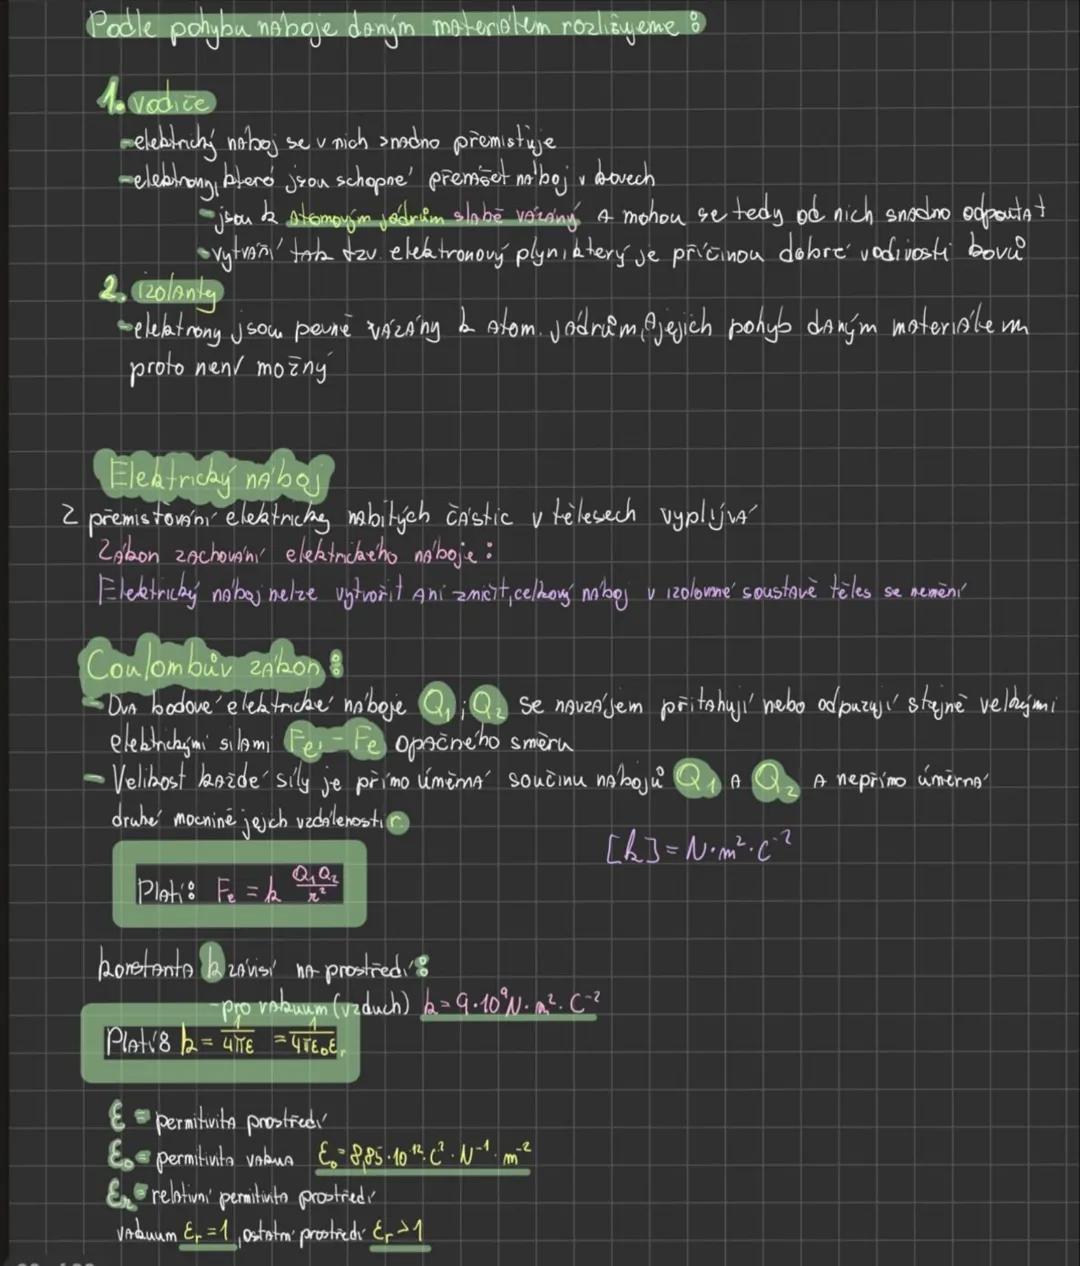 Podle pohybu náboje daným materiálem rozlišujeme:
1. vodiče
- elektrický náboj se v nich snadno přemistuje
- elektrony, které jsou schopné přenášet náboj v kovech
- jsou k atomovým jádrům slabě vázány A mohou se tedy od nich snadno odpoutat
- vytváří tak tzv. elektronový plyn, který je příčinou dobré vodivosti kovů
2. izolanty
- elektrony jsou pevně vázány k atom. jádrům, A jejich pohyb daným materiálem
proto není možný
Elektrický náboj
Z přemisťování elektricky nabitých částic v tělesech vyplývá
Zákon zachování elektrického náboje:
Elektrický náboj nelze vytvořit ani zničit, celkový náboj v izolovné soustavě těles se nemění
Coulombův zákon:
- Dva bodové elektrické náboje Q₁; Q₂ se navzájem přitahují nebo odpuzují stejně velkými
elektrickými silami Fe, -Fe opačného směru
- Velikost každé síly je přímo úměrná součinu nábojů Q₁ A Q₂ A nepřímo úměrná
druhé mocnině jejich vzdálenosti r
[k] = N·m²·C⁻²
Platí: Fe = k Q₁Q₂/r²
konstanta k závisí na prostředí:
- pro vakuum (vzduch) k = 9·10⁹ N·m²·C⁻²
Platí: k = 1/4πε = 1/4πε₀εr
ε = permitivita prostředí
ε₀ = permitivita vakua ε₀ = 8,85·10⁻¹²·C²·N⁻¹·m⁻²
εr = relativní permitivita prostředí
vakuum εr = 1, ostatní prostředí εr > 1